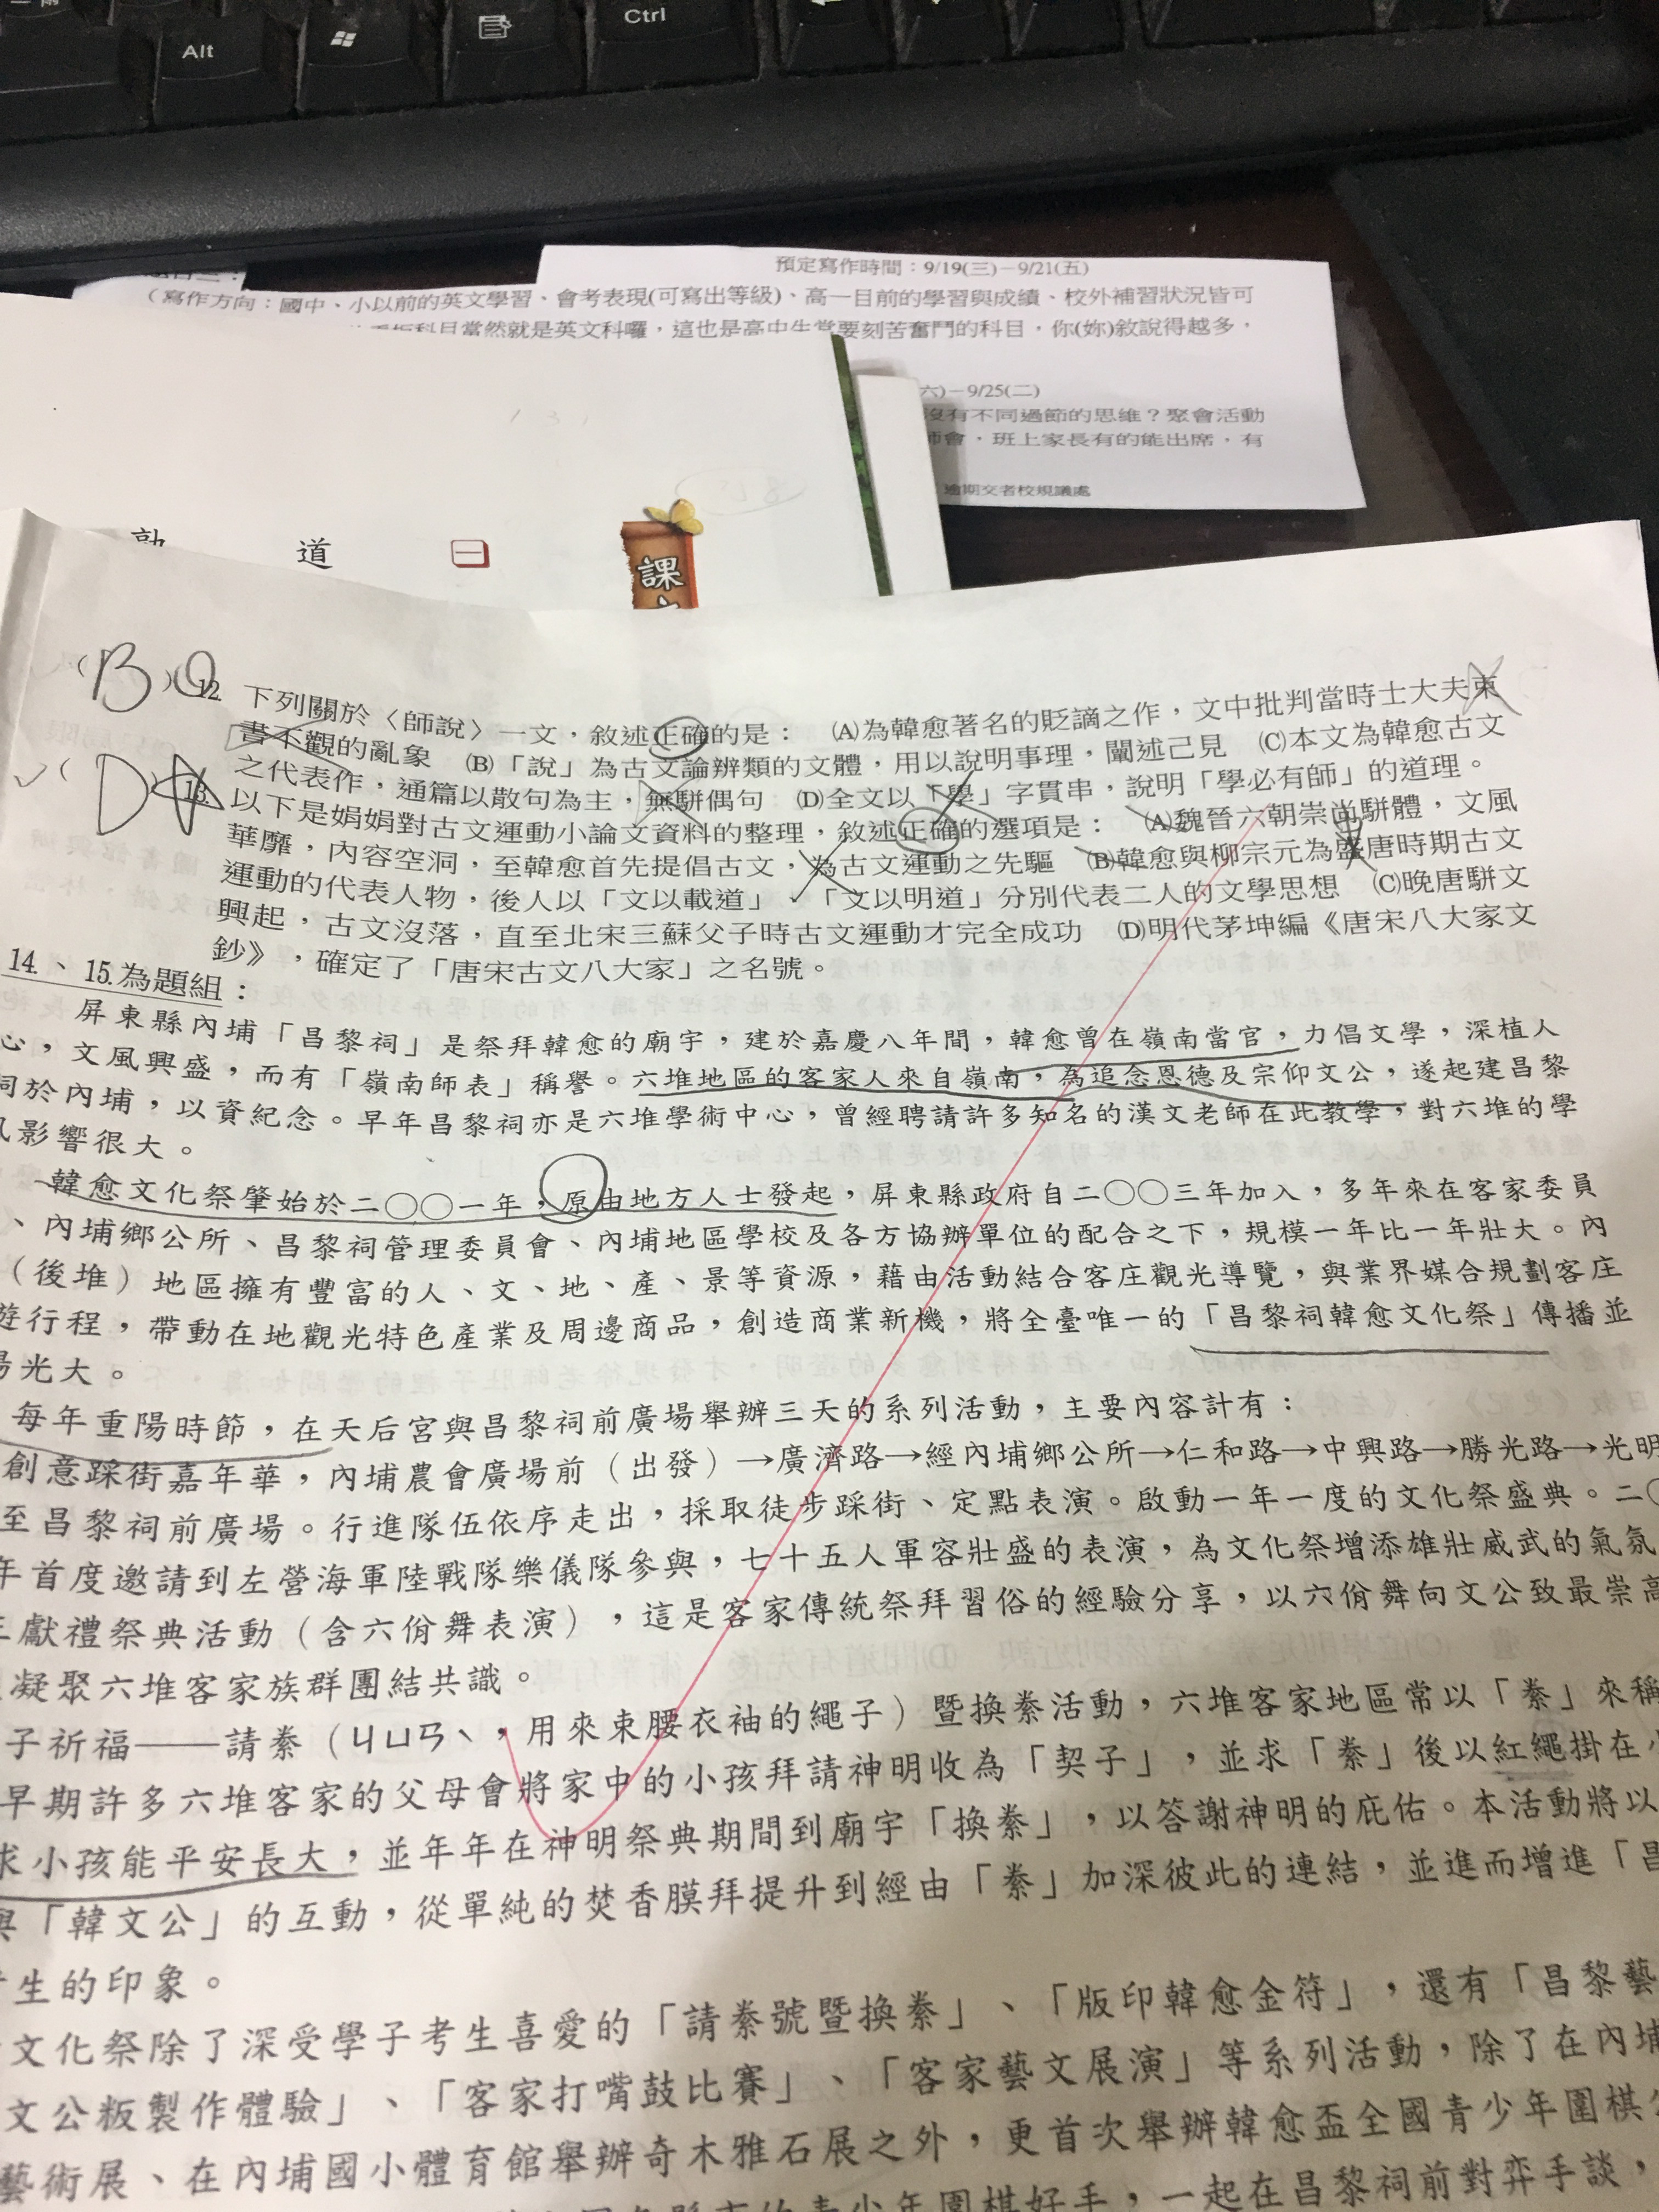 Alt
Ctrl
預定寫作時間：9/19(三)－9/21(五)
（寫作方向：國中、小以前的英文學習、會考表現(可寫出等級)、高一目前的學習與成績、校外補習狀況皆可
科目當然就是英文科囉，這也是高中生當要刻苦奮鬥的科目，你(妳)敘說得越多，
六)－9/25(二)
沒有不同過節的思維？聚會活動
師會，班上家長有的能出席，有
逾期交者校規議處
道 一 課
(B) 12. 下列關於〈師說〉一文，敘述正確的是： (A)為韓愈著名的貶謫之作，文中批判當時士大夫束
書不觀的亂象 (B)「說」為古文論辨類的文體，用以說明事理，闡述己見 (C)本文為韓愈古文
之代表作，通篇以散句為主，無駢偶句 (D)全文以「學」字貫串，說明「學必有師」的道理。
(D) 13. 以下是娟娟對古文運動小論文資料的整理，敘述正確的選項是： (A)魏晉六朝崇尚駢體，文風
華靡，內容空洞，至韓愈首先提倡古文，為古文運動之先驅 (B)韓愈與柳宗元為盛唐時期古文
運動的代表人物，後人以「文以載道」、「文以明道」分別代表二人的文學思想 (C)晚唐駢文
興起，古文沒落，直至北宋三蘇父子時古文運動才完全成功 (D)明代茅坤編《唐宋八大家文
鈔》，確定了「唐宋古文八大家」之名號。
14.、15.為題組：
屏東縣內埔「昌黎祠」是祭拜韓愈的廟宇，建於嘉慶八年間，韓愈曾在嶺南當官，力倡文學，深植人
心，文風興盛，而有「嶺南師表」稱譽。六堆地區的客家人來自嶺南，為追念恩德及宗仰文公，遂起建昌黎
祠於內埔，以資紀念。早年昌黎祠亦是六堆學術中心，曾經聘請許多知名的漢文老師在此教學，對六堆的學
風影響很大。
韓愈文化祭肇始於二〇〇一年，原由地方人士發起，屏東縣政府自二〇〇三年加入，多年來在客家委員
、內埔鄉公所、昌黎祠管理委員會、內埔地區學校及各方協辦單位的配合之下，規模一年比一年壯大。內
（後堆）地區擁有豐富的人、文、地、產、景等資源，藉由活動結合客庄觀光導覽，與業界媒合規劃客庄
遊行程，帶動在地觀光特色產業及周邊商品，創造商業新機，將全臺唯一的「昌黎祠韓愈文化祭」傳播並
揚光大。
每年重陽時節，在天后宮與昌黎祠前廣場舉辦三天的系列活動，主要內容計有：
創意踩街嘉年華，內埔農會廣場前（出發）→廣濟路→經內埔鄉公所→仁和路→中興路→勝光路→光明
至昌黎祠前廣場。行進隊伍依序走出，採取徒步踩街、定點表演。啟動一年一度的文化祭盛典。二〇
年首度邀請到左營海軍陸戰隊樂儀隊參與，七十五人軍容壯盛的表演，為文化祭增添雄壯威武的氣氛
獻禮祭典活動（含六佾舞表演），這是客家傳統祭拜習俗的經驗分享，以六佾舞向文公致最崇高
凝聚六堆客家族群團結共識。
子祈福——請絭（ㄐㄩㄢˋ，用來束腰衣袖的繩子）暨換絭活動，六堆客家地區常以「絭」來稱
早期許多六堆客家的父母會將家中的小孩拜請神明收為「契子」，並求「絭」後以紅繩掛在小
求小孩能平安長大，並年年在神明祭典期間到廟宇「換絭」，以答謝神明的庇佑。本活動將以
與「韓文公」的互動，從單純的焚香膜拜提升到經由「絭」加深彼此的連結，並進而增進「昌
生的印象。
文化祭除了深受學子考生喜愛的「請絭號暨換絭」、「版印韓愈金符」，還有「昌黎藝
文公粄製作體驗」、「客家打嘴鼓比賽」、「客家藝文展演」等系列活動，除了在內埔
藝術展、在內埔國小體育館舉辦奇木雅石展之外，更首次舉辦韓愈盃全國青少年圍棋公
的青少年圍棋好手，一起在昌黎祠前對弈手談，